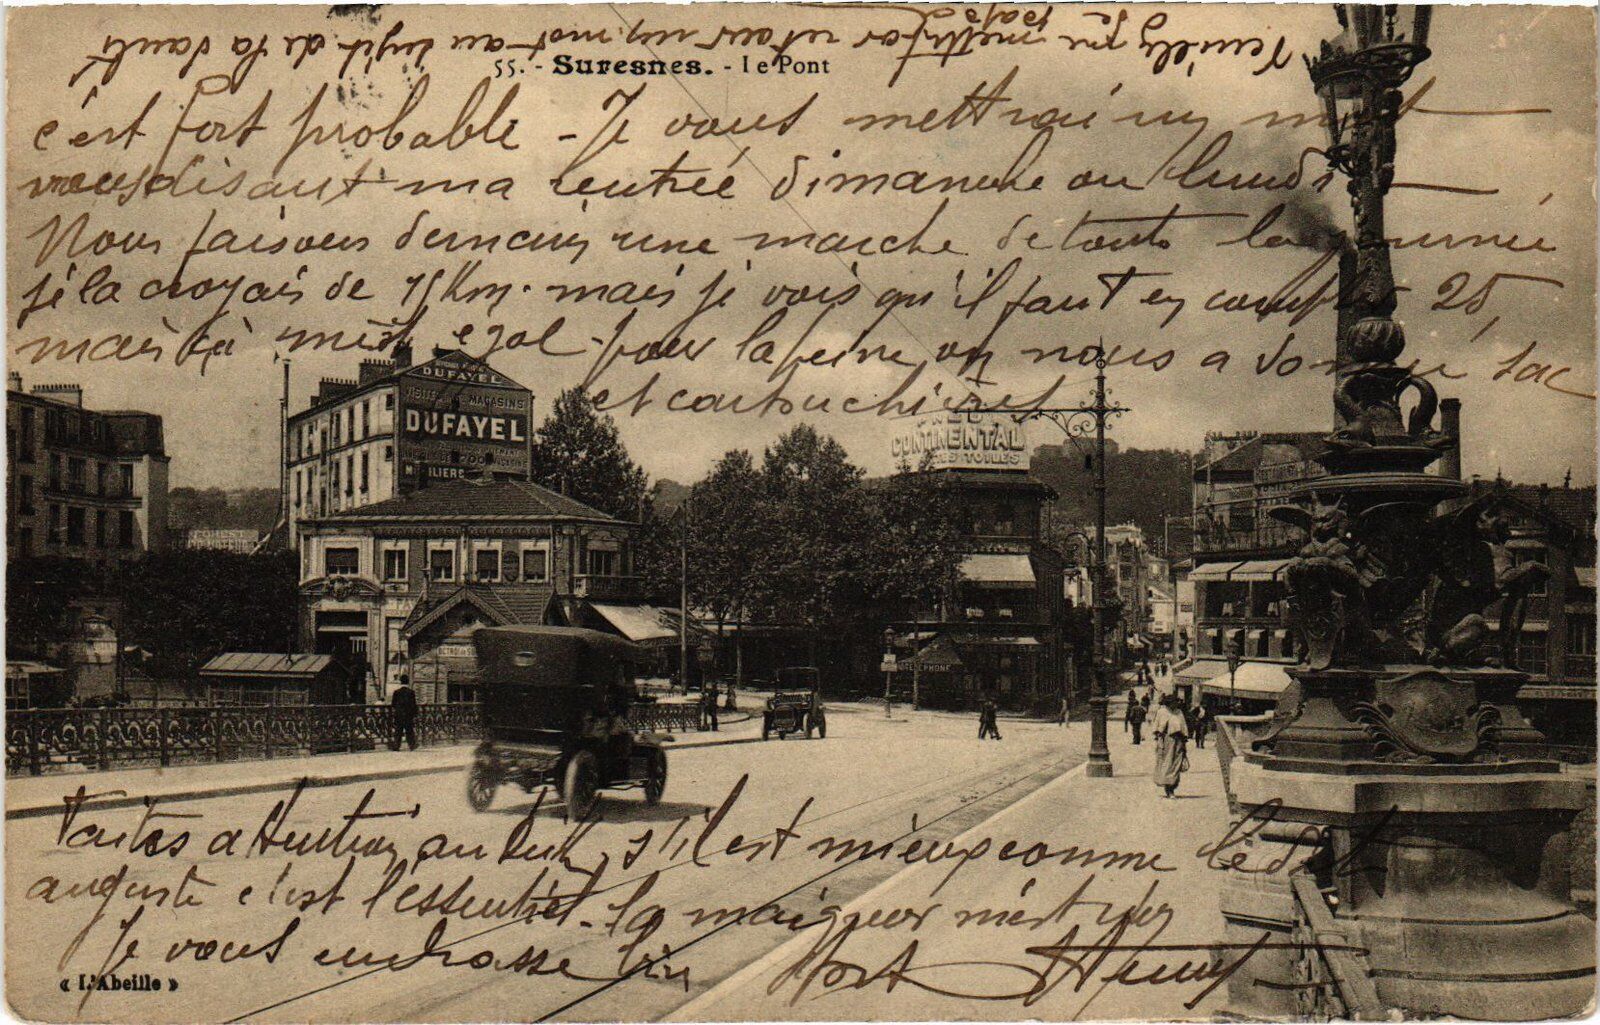 Veuillez me mettre par retour un mot au sujet de la santé
55. - Suresnes. - Le Pont
c'est fort probable - Je vous mettrai un mot
vous disant ma rentrée dimanche ou lundi
Nous faisons demain une marche de toute la journée
je la croyais de 15 Km. mais je vois qu'il faut en compter 25,
mais ça m'est egal - pour la peine on nous a donné sac
et cartouchières
DUFAYEL
MAGASINS
DUFAYEL
CONTINENTAL
TOILES
Faites attention au s'il est mieux comme le dit
auguste c'est l'essentiel - la maigreur n'est rien
Je vous embrasse bien fort Henry
« L'Abeille »